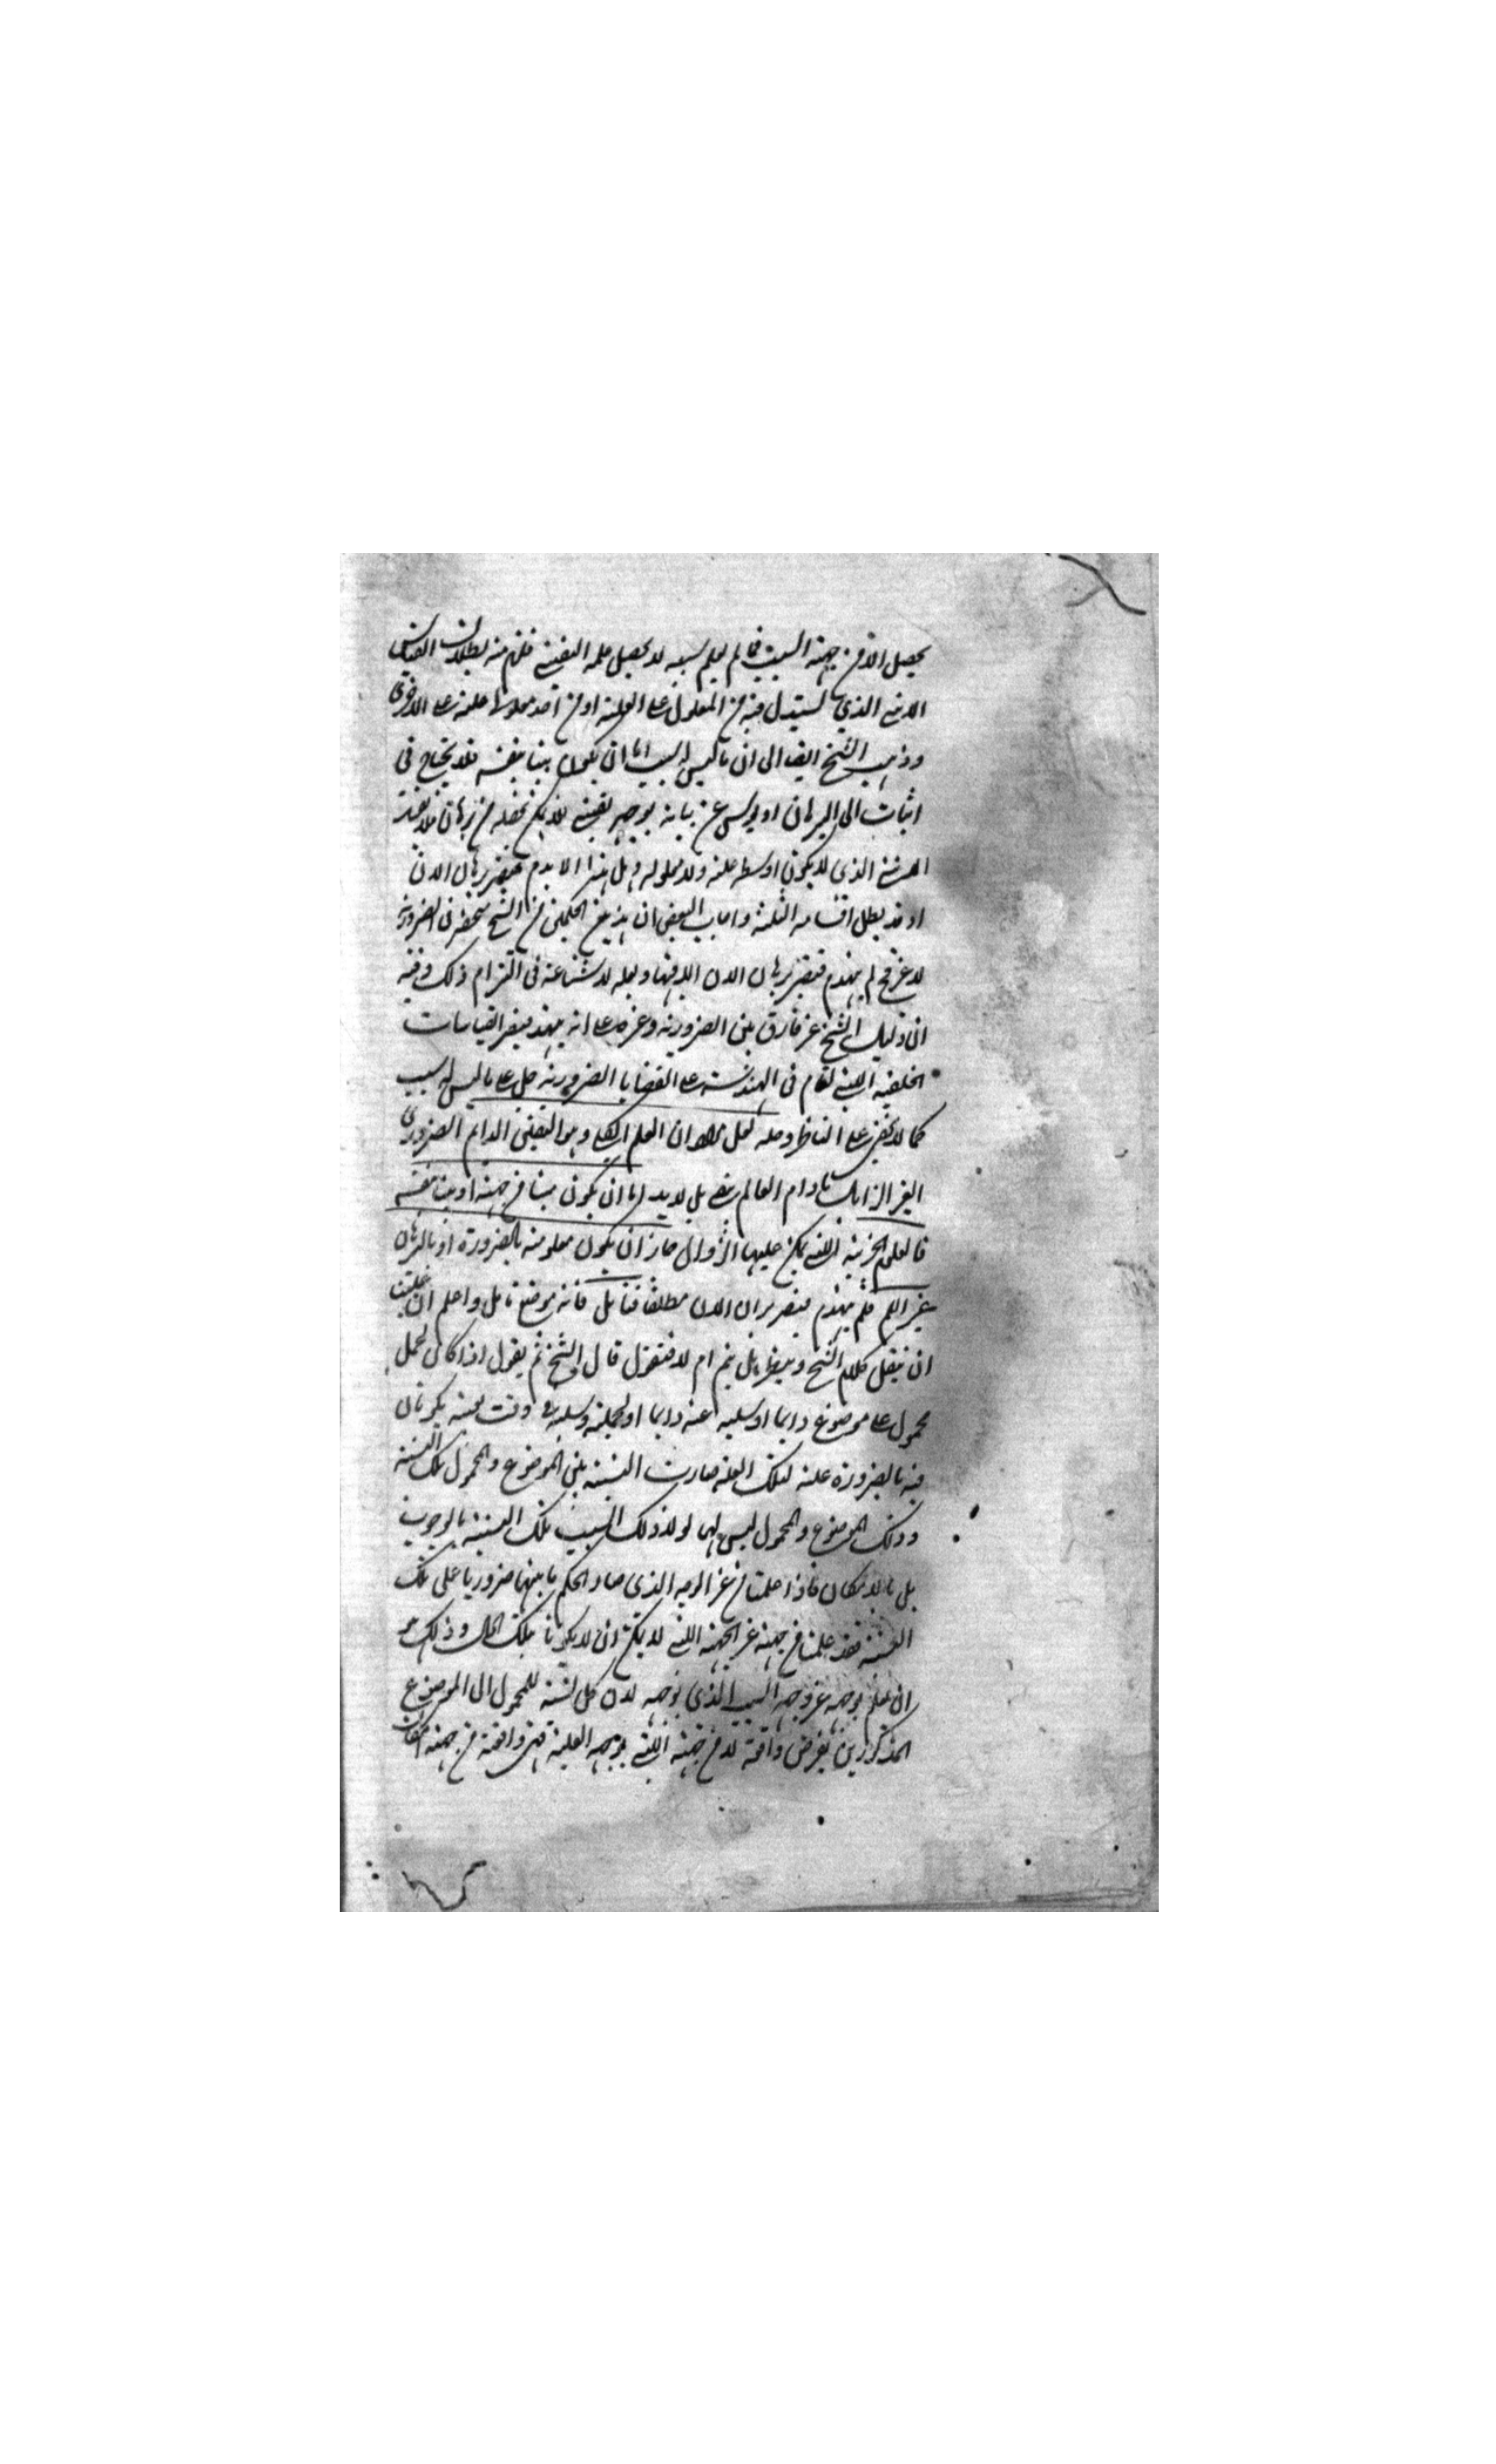 يحصل الا من جهة السبب فما لم يعلم سببه لا يحصل علمه اليقيني فلزم منه بطلان القياس
الاني الذي يستدل فيه من المعلول على العلة او من احد معلولي علته على الاخرى
وذهب الشيخ ايضا الى ان ما ليس له سبب اما ان يكون بينا بنفسه فلا يحتاج في
اثبات الى البرهان او عن بيانه بوجه يقيني فلا يمكن من برهان فلا يفيد
الذي لا يكون اوسطه علة ولا معلولة وهل هذا الا برهان الان
او قد بطل اقسامه الثلثة واجاب البعض ان هذين الحكمين من الشيخ في الضرورية
لا غير فح لم ينهدم قصر برهان الان الا فيها ولعله لا شناعة في التزام ذلك وفيه
ان دليل الشيخ غير فارق بين الضرورية وغيرها على انه ينهدم القياسات
الخلفية التي تقام في الهندسة على القضايا الضرورية بل على ما ليس له سبب
كما لا يخفى على الناظر وحله لعل ان العلم الكلي وهو اليقيني الدائم الضروري
الغير الزائل ما دام العالم بل لابد اما ان يكون مبينا من جهته او بينا بنفسه
فالعلوم الجزئية التي يمكن عليها الزوال جاز ان يكون معلومة بالضرورة او بالبرهان
غير اللم فلم ينهدم قصر برهان الان مطلقا فتأمل فانه موضع تامل واعلم ان علينا
ان ننقل كلام الشيخ وننظر هل يتم ام لا فنقول قال الشيخ ثم يقول اذا كان لحمل
محمول على موضوع دايما او سلبه عنه دايما او لحمله وسلبه في وقت بعينه يكونان
فيه بالضرورة علة لتلك العلة صارت النسبة بين الموضوع والمحمول تلك النسبة
وذلك الموضوع والمحمول ليس لهما لولا ذلك السبب تلك النسبة بالوجوب
بل بالامكان فاذا علمتا من غير الوجه الذي صار الحكم ما بينهما ضروريا على تلك
النسبة فقد علمتا من جهة غير الجهة التي لا يمكن ان لا يكونا بتلك الحال وذلك هو
ان تعلم بوجه غير وجه السبب الذي يوجبه لان كل نسبة للمحمول الى الموضوع
المذكورين يفرض واقعة لا من جهة التي يوجبه العلية فهي واقعة من جهة امكان